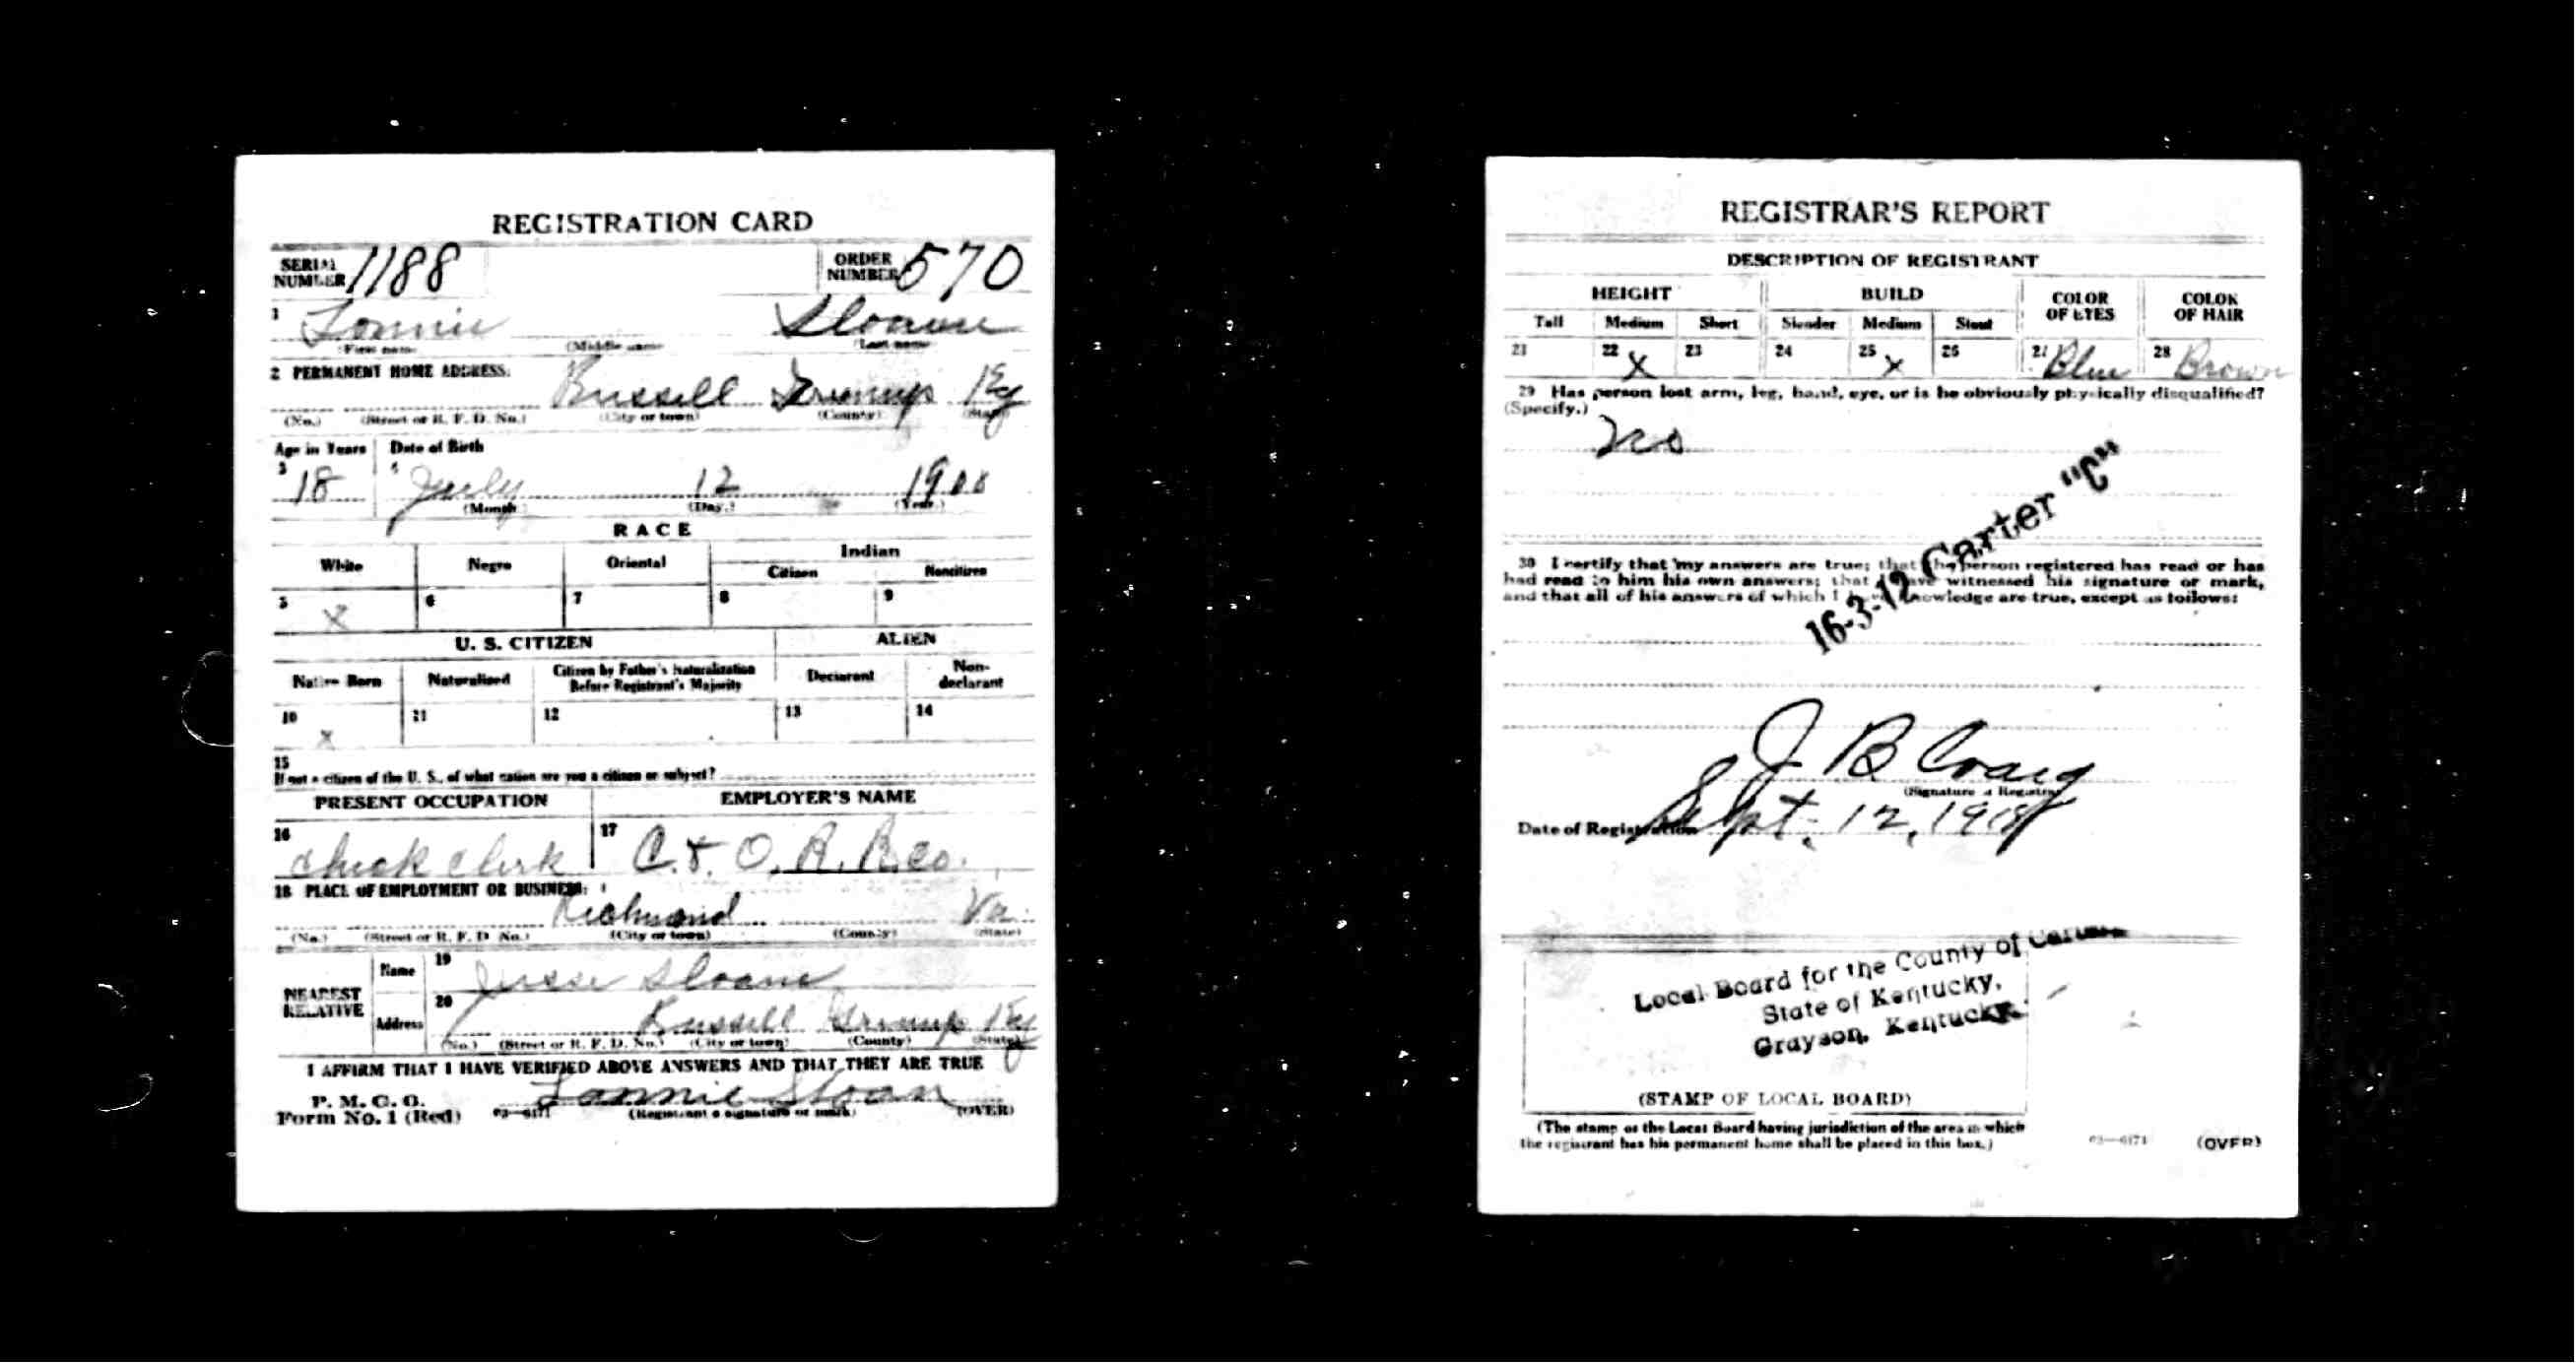 REGISTRATION CARD
SERIAL NUMBER 1188 ORDER NUMBER 570
1 Lonnie Sloane
(First name) (Middle name) (Last name)
2 PERMANENT HOME ADDRESS:
Russell Greenup Ky
(No.) (Street or R. F. D. No.) (City or town) (County) (State)
Age in Years Date of Birth
3 18 4 July 12 1900
(Month.) (Day.) (Year.)
RACE
White Negro Oriental Indian
Citizen Noncitizen
5 X 6 7 8 9
U. S. CITIZEN ALIEN
Native Born Naturalized Citizen by Father's Naturalization Before Registrant's Majority Declarant Non-declarant
10 X 11 12 13 14
15
If not a citizen of the U. S., of what nation are you a citizen or subject?
PRESENT OCCUPATION EMPLOYER'S NAME
16 Check Clerk 17 C. & O. R. R. Co.
18 PLACE OF EMPLOYMENT OR BUSINESS:
Richmond Va.
(No.) (Street or R. F. D. No.) (City or town) (County) (State)
NEAREST RELATIVE Name 19 Jesse Sloane
Address 20 Russell Greenup Ky
(No.) (Street or R. F. D. No.) (City or town) (County) (State)
I AFFIRM THAT I HAVE VERIFIED ABOVE ANSWERS AND THAT THEY ARE TRUE
P. M. G. O.
Form No. 1 (Red) 03—6171 Lonnie Sloan
(Registrant's signature or mark) (OVER)
REGISTRAR'S REPORT
DESCRIPTION OF REGISTRANT
HEIGHT BUILD COLOR OF EYES COLOR OF HAIR
Tall Medium Short Slender Medium Stout
21 22 X 23 24 25 X 26 27 Blue 28 Brown
29 Has person lost arm, leg, hand, eye, or is he obviously physically disqualified?
(Specify.)
No
16-3-12 Carter "C"
30 I certify that my answers are true; that the person registered has read or has
had read to him his own answers; that I have witnessed his signature or mark,
and that all of his answers of which I have knowledge are true, except as follows:
J B Craig
(Signature of Registrar)
Date of Registration Sept. 12, 1918
Local Board for the County of Carter
State of Kentucky,
Grayson, Kentucky.
(STAMP OF LOCAL BOARD)
(The stamp of the Local Board having jurisdiction of the area in which
the registrant has his permanent home shall be placed in this box.)
03—6171 (OVER)